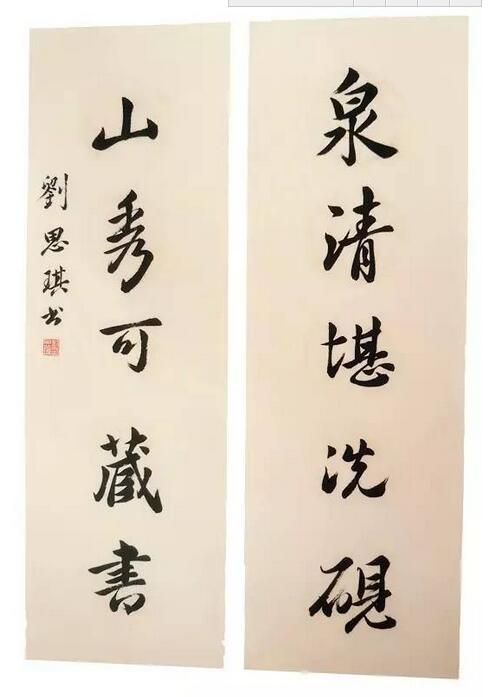 泉清堪洗硯
山秀可藏書
劉思琪书